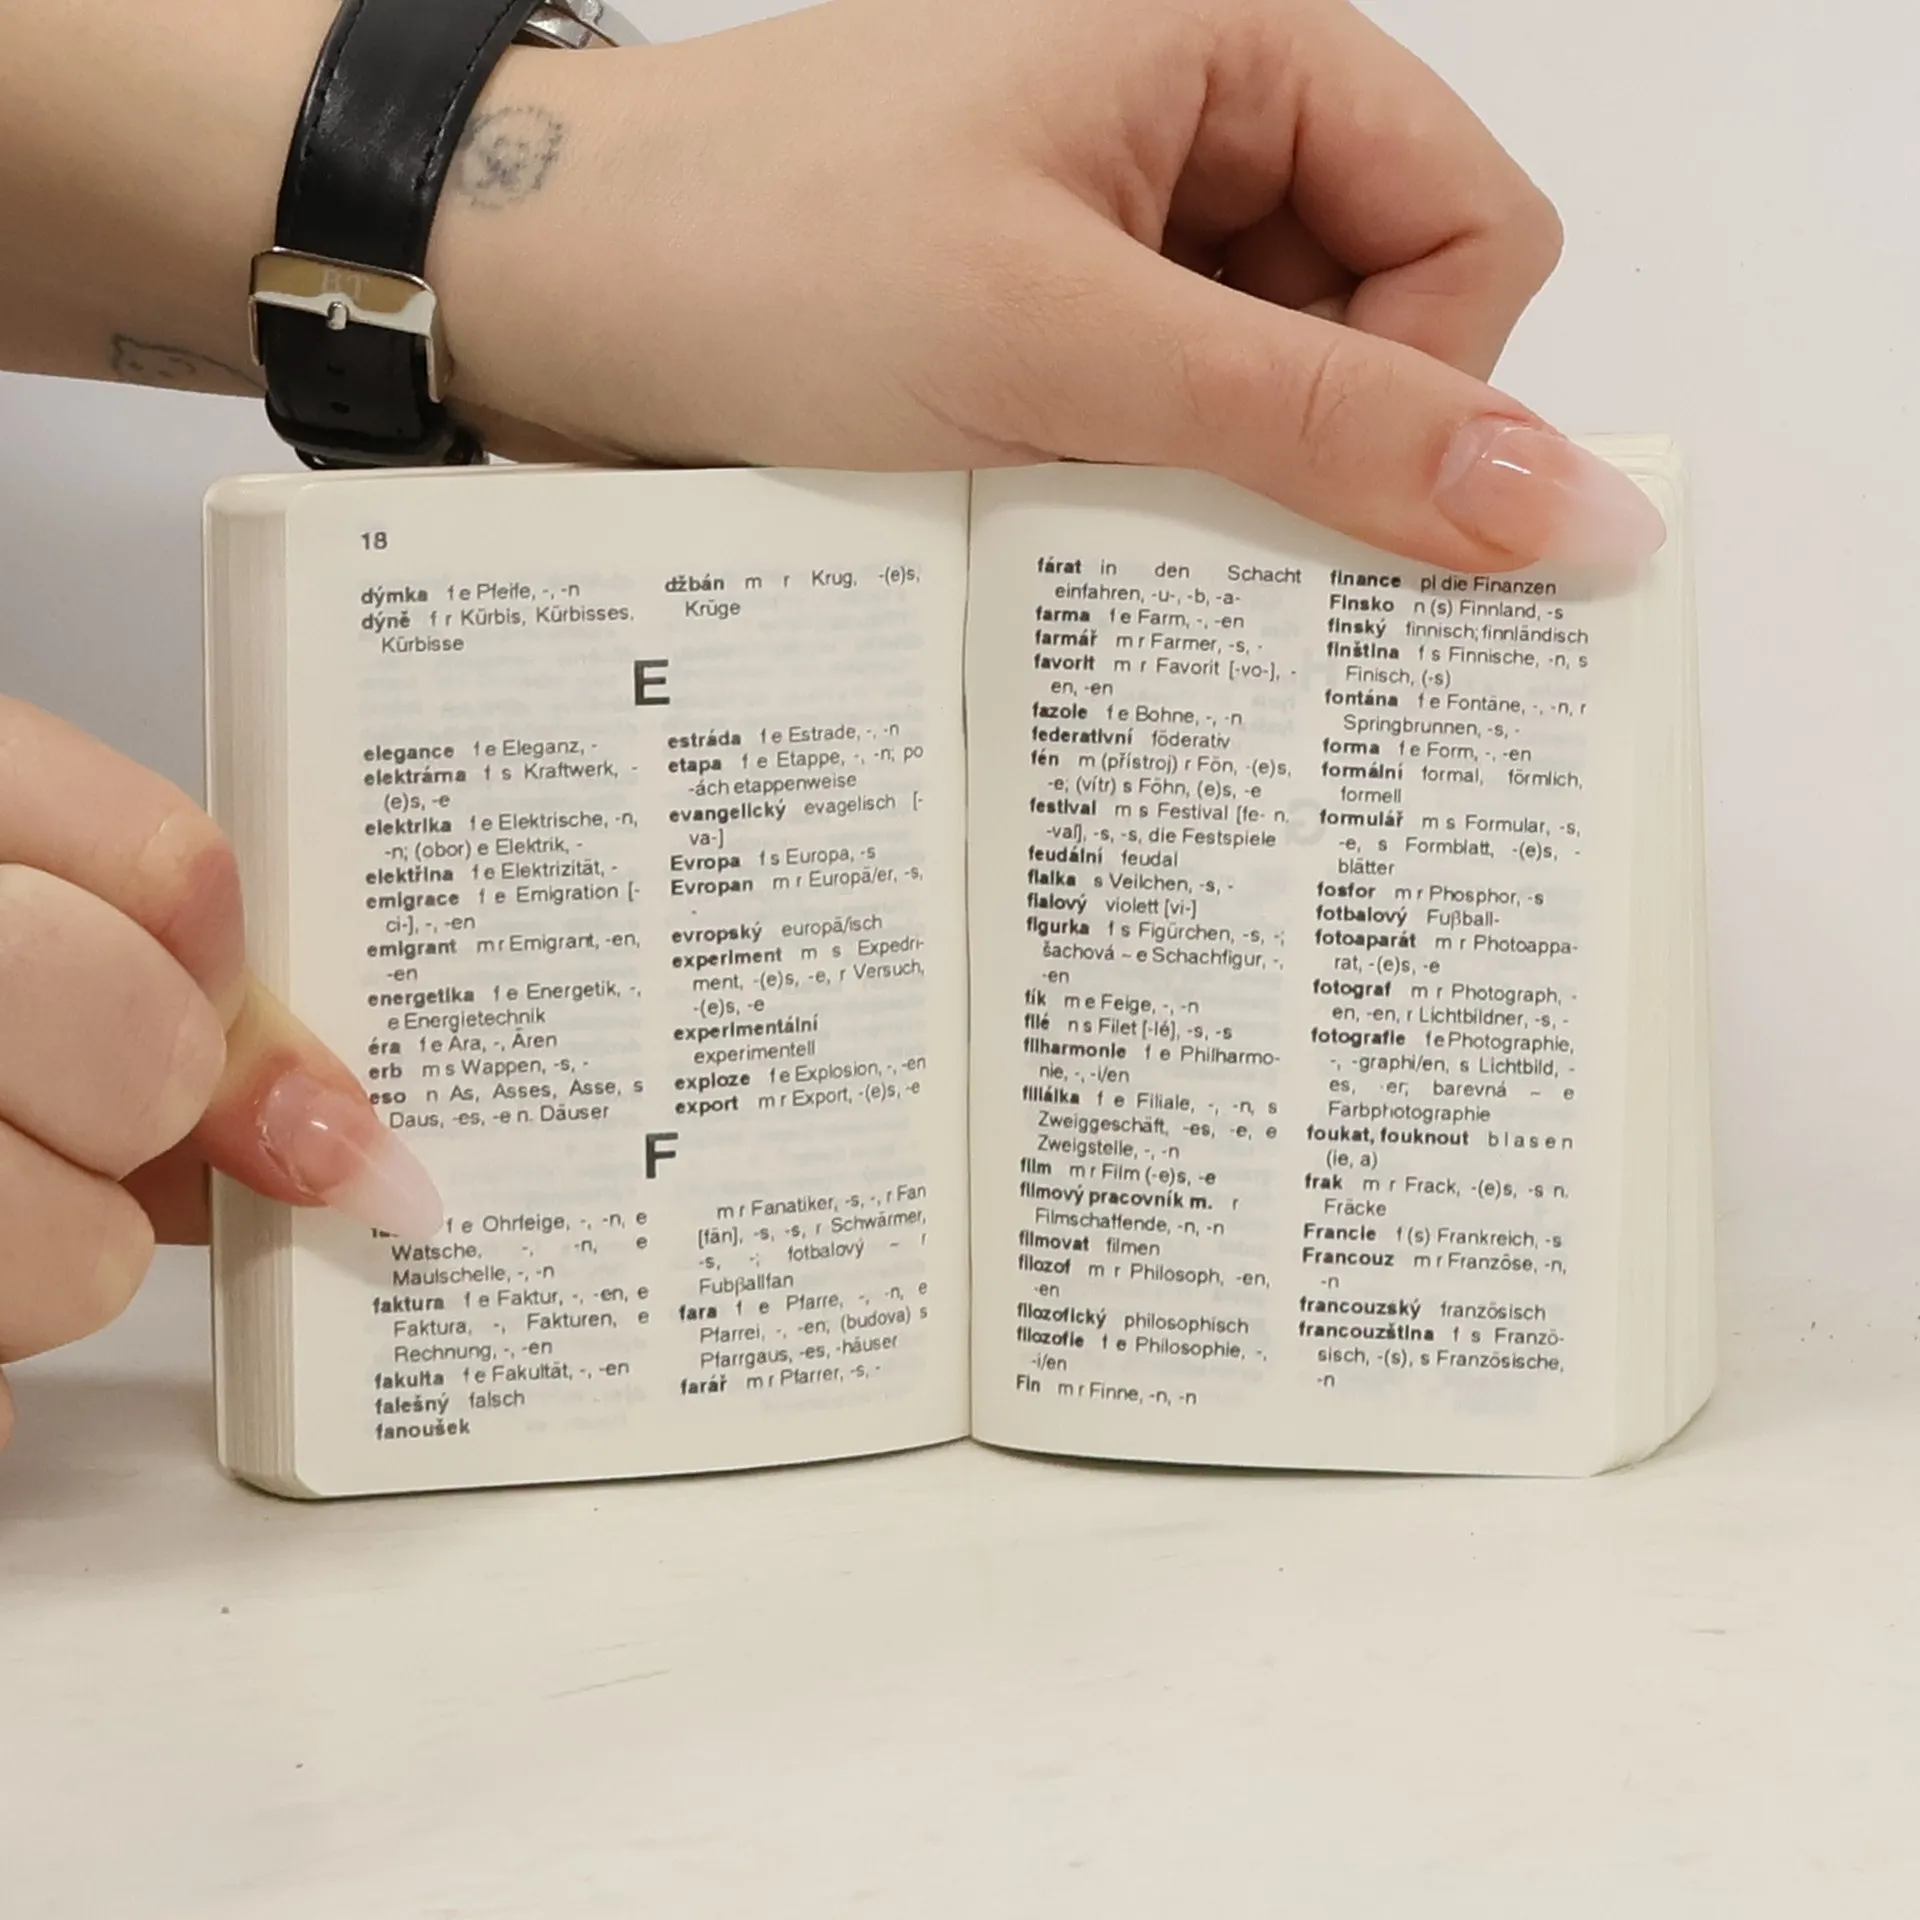 18
dýmka f e Pfeife, -, -n
dýně f r Kürbis, Kürbisses,
Kürbisse
džbán m r Krug, -(e)s,
Krüge
E
elegance f e Eleganz, -
elektrárna f s Kraftwerk, -
(e)s, -e
elektrika f e Elektrische, -n,
-n; (obor) e Elektrik, -
elektřina f e Elektrizität, -
emigrace f e Emigration [-
ci-], -, -en
emigrant m r Emigrant, -en,
-en
energetika f e Energetik, -,
e Energietechnik
éra f e Ära, -, Ären
erb m s Wappen, -s, -
eso n As, Asses, Asse, s
Daus, -es, -e n. Däuser
estráda f e Estrade, -, -n
etapa f e Etappe, -, -n; po
-ách etappenweise
evangelický evagelisch [-
va-]
Evropa f s Europa, -s
Evropan m r Europä/er, -s,
-
evropský europä/isch
experiment m s Expedri-
ment, -(e)s, -e, r Versuch,
-(e)s, -e
experimentální
experimentell
exploze f e Explosion, -, -en
export m r Export, -(e)s, -e
F
f e Ohrfeige, -, -n, e
Watsche, -, -n, e
Maulschelle, -, -n
faktura f e Faktur, -, -en, e
Faktura, -, Fakturen, e
Rechnung, -, -en
fakulta f e Fakultät, -, -en
falešný falsch
fanoušek
m r Fanatiker, -s, -, r Fan
[fän], -s, -s, r Schwärmer,
-s, -; fotbalový ~ r
Fubβallfan
fara f e Pfarre, -, -n, e
Pfarrei, -, -en; (budova) s
Pfarrgaus, -es, -häuser
farář m r Pfarrer, -s, -
fárat in den Schacht
einfahren, -u-, -b, -a-
farma f e Farm, -, -en
farmář m r Farmer, -s, -
favorit m r Favorit [-vo-], -
en, -en
fazole f e Bohne, -, -n
federativní föderativ
fén m (přístroj) r Fön, -(e)s,
-e; (vítr) s Föhn, (e)s, -e
festival m s Festival [fe- n.
-val], -s, -s, die Festspiele
feudální feudal
fialka s Veilchen, -s, -
fialový violett [vi-]
figurka f s Figürchen, -s, -;
šachová ~ e Schachfigur, -,
-en
fík m e Feige, -, -n
filé n s Filet [-lé], -s, -s
filharmonie f e Philharmo-
nie, -, -i/en
filiálka f e Filiale, -, -n, s
Zweiggeschäft, -es, -e, e
Zweigstelle, -, -n
film m r Film (-e)s, -e
filmový pracovník m. r
Filmschaffende, -n, -n
filmovat filmen
filozof m r Philosoph, -en,
-en
filozofický philosophisch
filozofie f e Philosophie, -,
-i/en
Fin m r Finne, -n, -n
finance pl die Finanzen
Finsko n (s) Finnland, -s
finský finnisch; finnländisch
finština f s Finnische, -n, s
Finisch, (-s)
fontána f e Fontäne, -, -n, r
Springbrunnen, -s, -
forma f e Form, -, -en
formální formal, förmlich,
formell
formulář m s Formular, -s,
-e, s Formblatt, -(e)s, -
blätter
fosfor m r Phosphor, -s
fotbalový Fuβball-
fotoaparát m r Photoappa-
rat, -(e)s, -e
fotograf m r Photograph, -
en, -en, r Lichtbildner, -s, -
fotografie f e Photographie,
-, -graphi/en, s Lichtbild, -
es, -er; barevná ~ e
Farbphotographie
foukat, fouknout blasen
(ie, a)
frak m r Frack, -(e)s, -s n.
Fräcke
Francie f (s) Frankreich, -s
Francouz m r Französe, -n,
-n
francouzský französisch
francouzština f s Franzö-
sisch, -(s), s Französische,
-n